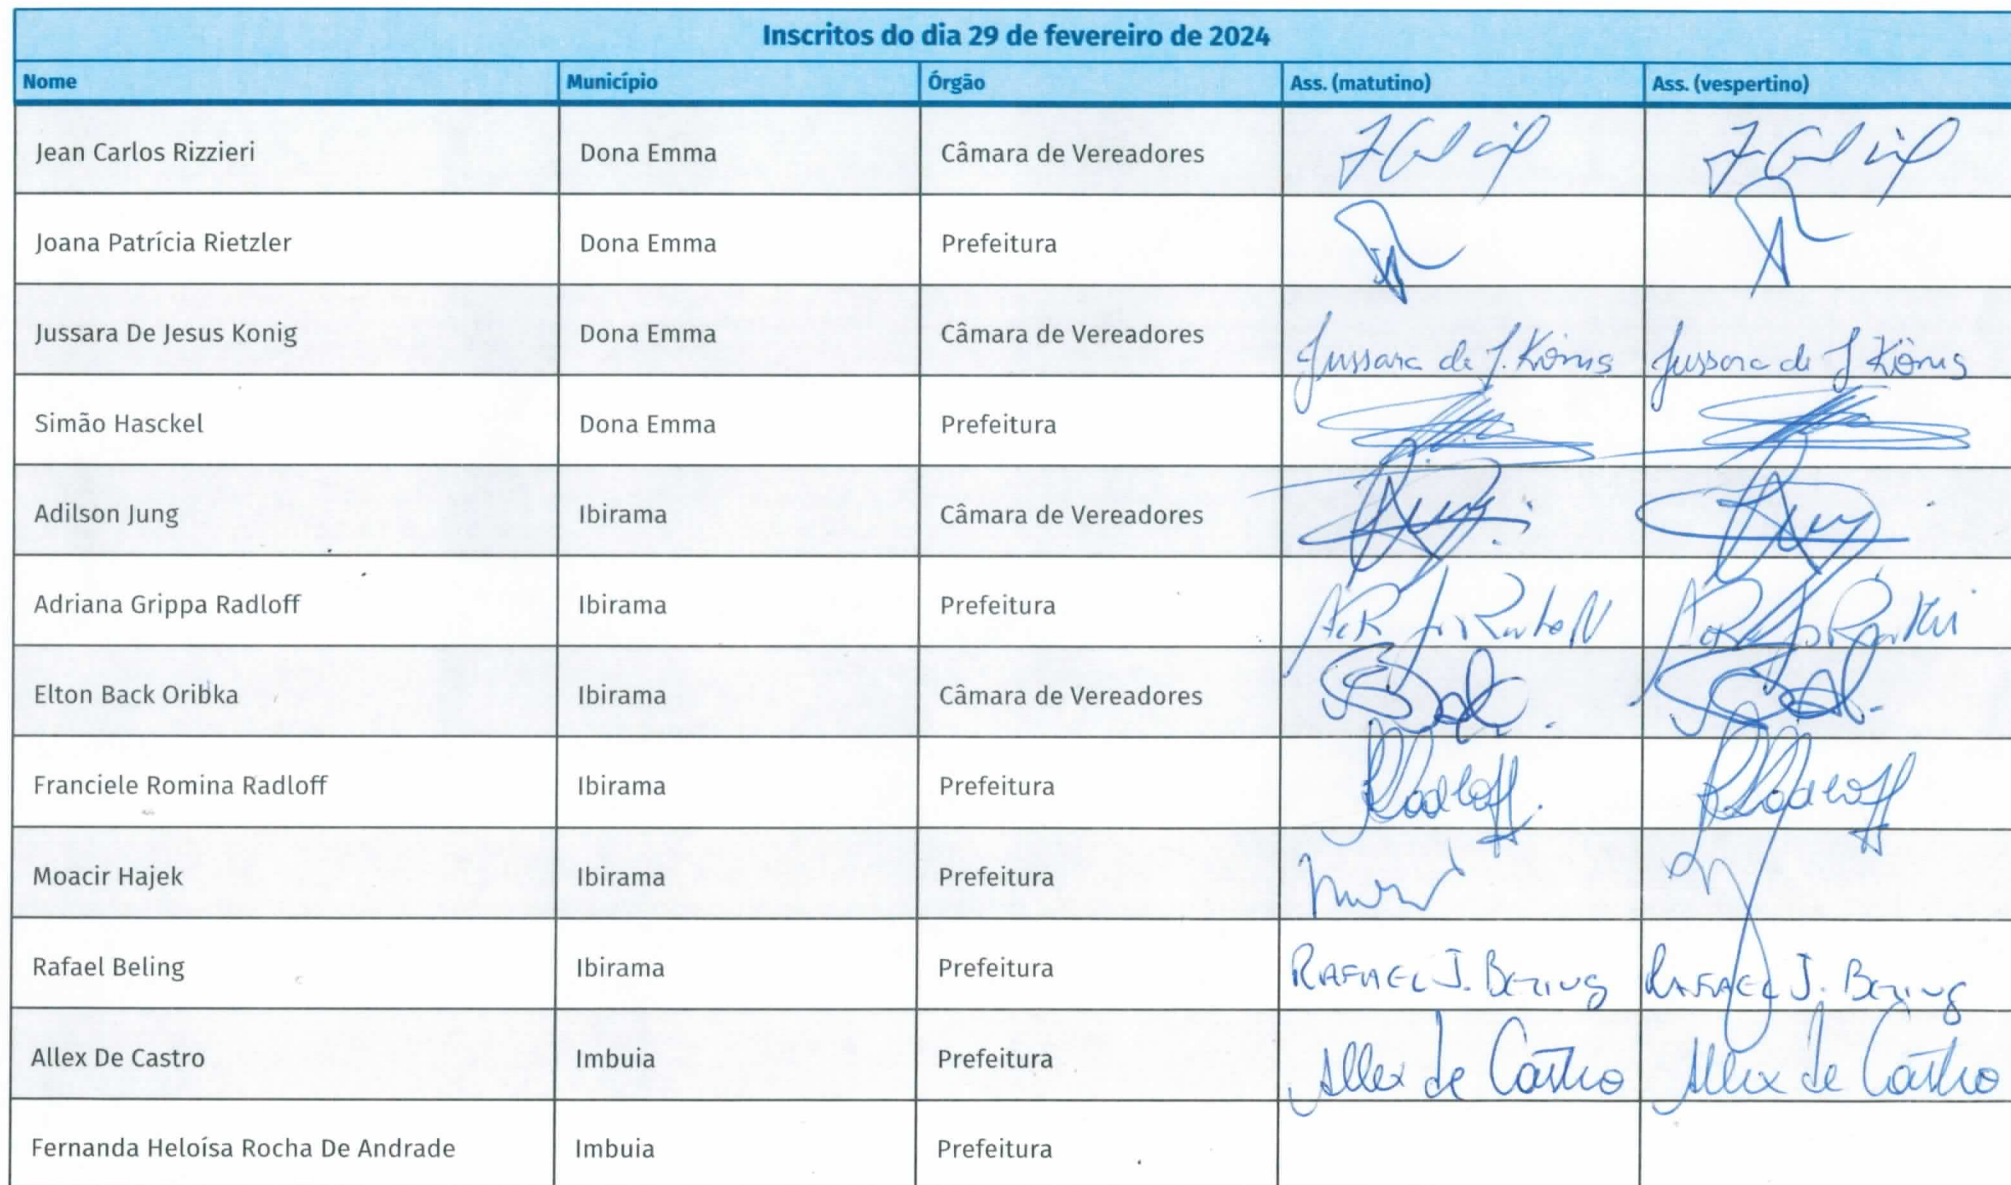 Inscritos do dia 29 de fevereiro de 2024
Nome Município Órgão Ass. (matutino) Ass. (vespertino)
Jean Carlos Rizzieri Dona Emma Câmara de Vereadores
Joana Patrícia Rietzler Dona Emma Prefeitura
Jussara De Jesus Konig Dona Emma Câmara de Vereadores Jussara de J. König Jussara de J König
Simão Hasckel Dona Emma Prefeitura
Adilson Jung Ibirama Câmara de Vereadores
Adriana Grippa Radloff Ibirama Prefeitura
Elton Back Oribka Ibirama Câmara de Vereadores
Franciele Romina Radloff Ibirama Prefeitura Radloff Radloff
Moacir Hajek Ibirama Prefeitura
Rafael Beling Ibirama Prefeitura RAFAEL J. BELING RAFAEL J. BELING
Allex De Castro Imbuia Prefeitura Allex de Castro Allex de Castro
Fernanda Heloísa Rocha De Andrade Imbuia Prefeitura